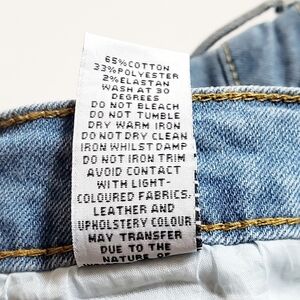 65%COTTON
33%POLYESTER
2%ELASTAN
WASH AT 30
DEGREES
DO NOT BLEACH
DO NOT TUMBLE
DRY WARM IRON
DO NOT DRY CLEAN
IRON WHILST DAMP
DO NOT IRON TRIM
AVOID CONTACT
WITH LIGHT-
COLOURED FABRICS,
LEATHER AND
UPHOLSTERY COLOUR
MAY TRANSFER
DUE TO THE
NATURE OF